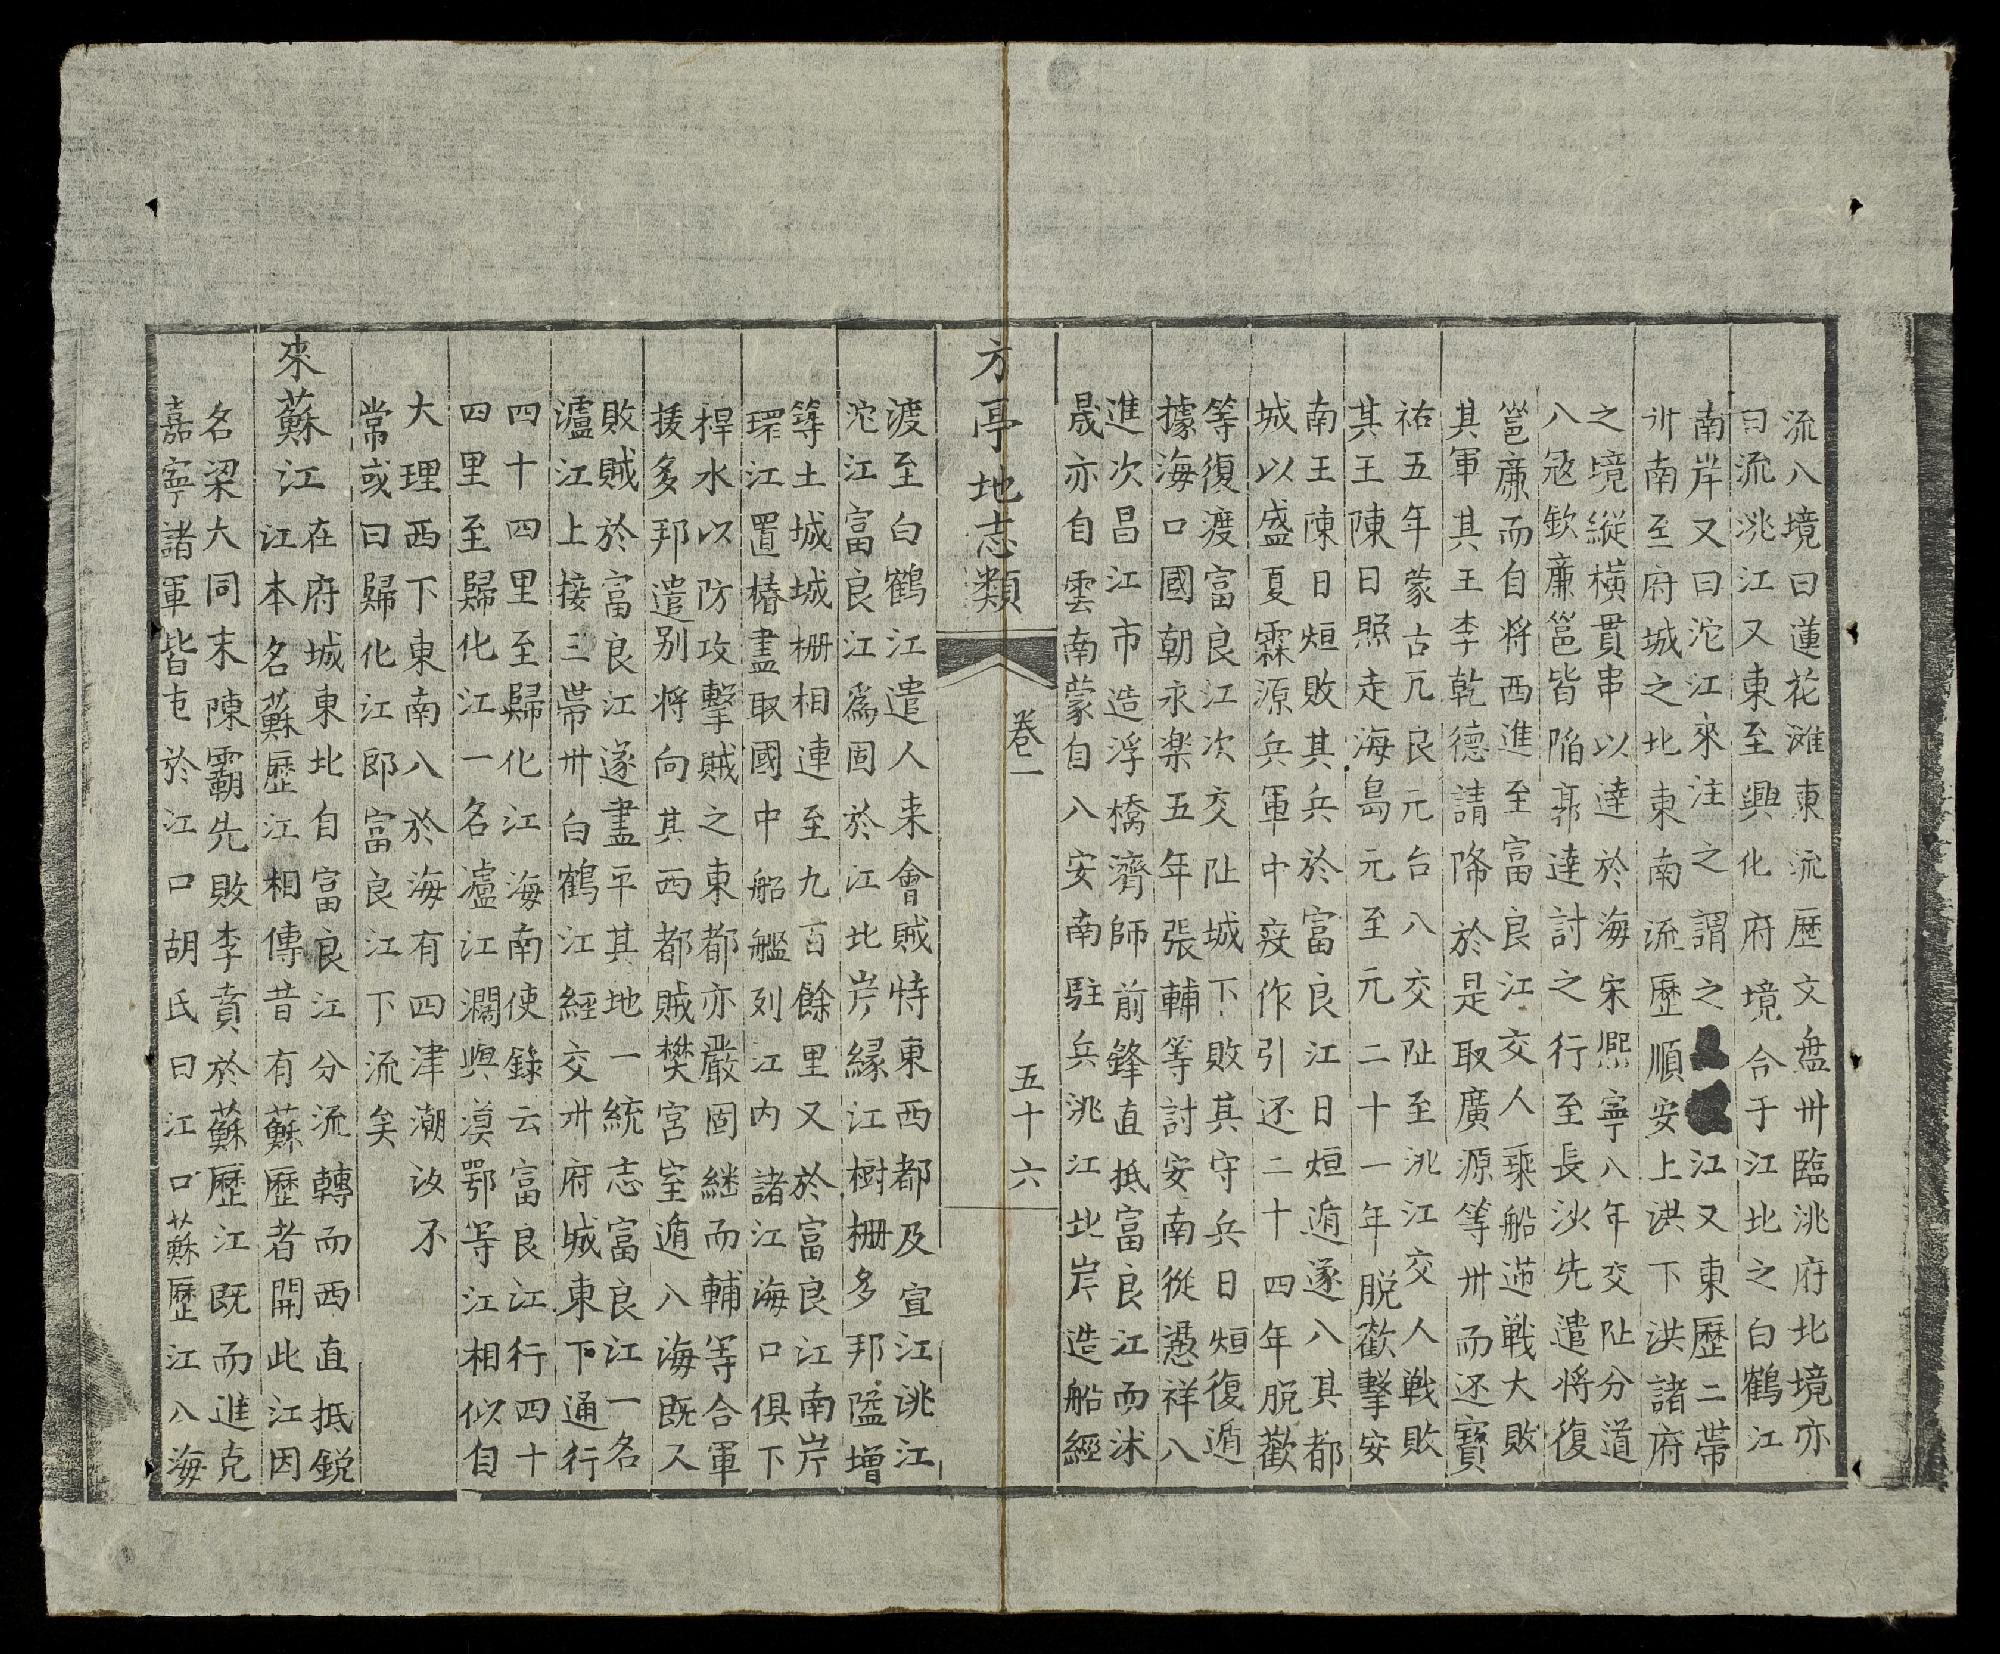 流八境曰蓮花灘東流歷文盤卅臨洮府北境亦
曰流洮江又東至興化府境合于江北之白鶴江
南岸又曰沱江來注之謂之江又東歷二帶
卅南至府城之北東南流歷順安上洪下洪諸府
之境縱橫貫串以達於海宋熙寧八年交阯分道
八冦欽廉邕皆陷郭逵討之行至長沙先遣將復
邕廉而自將西進至富良江交人乘船逆戦大敗
其軍其王李乾德請降於是取廣源等卅而还寶
祐五年蒙古兀良元台八交阯至洮江交人戦敗
其王陳日照走海島元至元二十一年脱歡擊安
南王陳日烜敗其兵於富良江日烜遁遂八其都
城以盛夏霖源兵軍中疫作引还二十四年脱歡
等復渡富良江次交阯城下敗其守兵日烜復遁
據海口國朝永楽五年張輔等討安南從慿祥八
進次昌江市造浮橋濟師前鋒直抵富良江而沭
晟亦自雲南蒙自八安南駐兵洮江北岸造船經
方亭地志類
卷二
五十六
渡至白鶴江遣人来會賊恃東西都及宣江洮江
沱江富良江爲固於江北岸縁江樹柵多邦隘增
等土城城柵相連至九百餘里又於富良江南岸
環江置樁盡取國中船艦列江内諸江海口俱下
桿水以防攻擊賊之東都亦嚴固継而輔等合軍
援多邦遣别将向其西都賊樊宮室遁八海既入
敗賊於富良江遂盡平其地一統志富良江一名
瀘江上接三帶卅白鶴江經交卅府城東下通行
四十四里至歸化江海南使錄云富良江行四十
四里至歸化江一名瀘江瀾與漠鄂等江相似自
大理西下東南八於海有四津潮汝不
常或曰歸化江郎富良江下流矣
來蘇江在府城東北自富良江分流轉而西直抵銳
江本名蘇歷江相傳昔有蘇歷者開此江因
名梁大同末陳霸先敗李賁於蘇歷江既而進克
嘉寧諸軍皆屯於江口胡氏曰江口蘇歷江八海